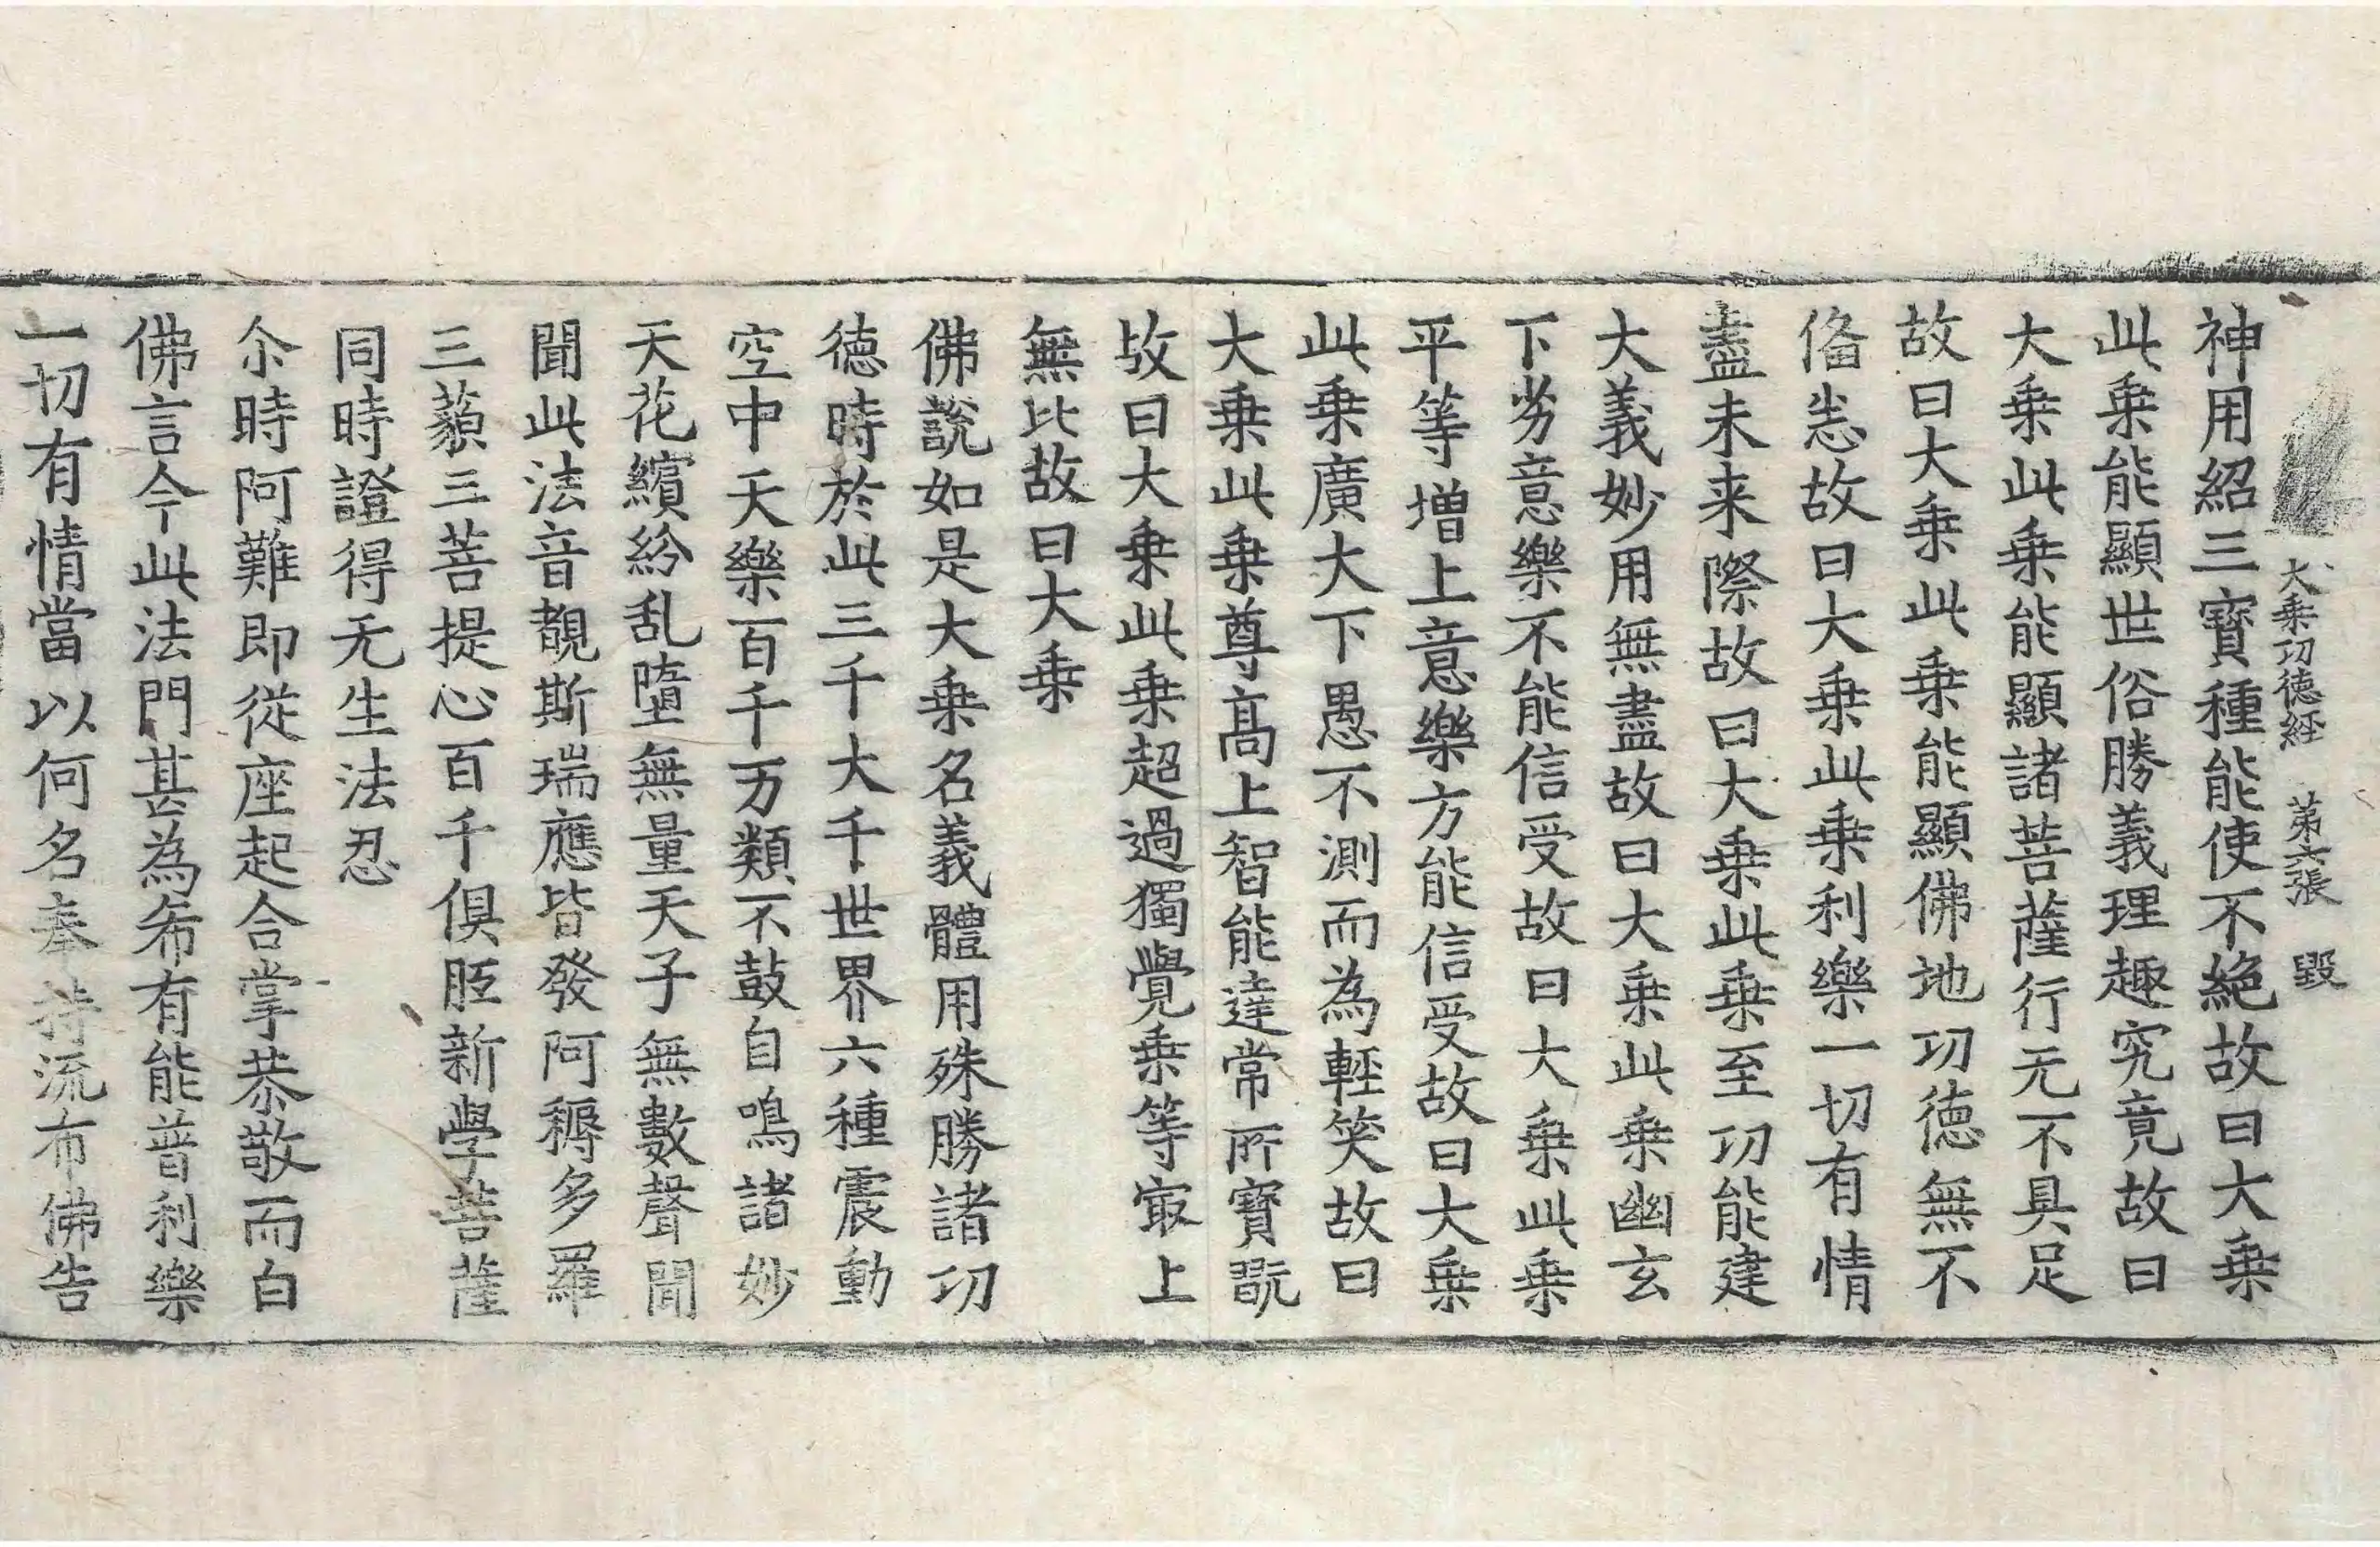 大乗功徳経　第六張　毀
神用紹三寳種能使不絶故曰大乗
此乗能顯世俗勝義理趣究竟故曰
大乗此乗能顯諸菩薩行无不具足
故曰大乗此乗能顯佛地功徳無不
俻悉故曰大乗此乗利樂一切有情
盡未来際故曰大乗此乗至功能建
大義妙用無盡故曰大乗此乗幽玄
下劣意樂不能信受故曰大乗此乗
平等増上意樂方能信受故曰大乗
此乗廣大下愚不測而為輕笑故曰
大乗此乗尊髙上智能達常所寳翫
故曰大乗此乗超過獨覺乗等冣上
無比故曰大乗
佛說如是大乗名義體用殊勝諸功
徳時於此三千大千世界六種震動
空中天樂百千万類不鼓自鳴諸妙
天花繽紛乱墮無量天子無數聲聞
聞此法音覩斯瑞應皆發阿耨多羅
三藐三菩提心百千俱胝新學菩薩
同時證得无生法忍
尒時阿難即從座起合掌恭敬而白
佛言今此法門甚為希有能普利樂
一切有情當以何名奉持流布佛告